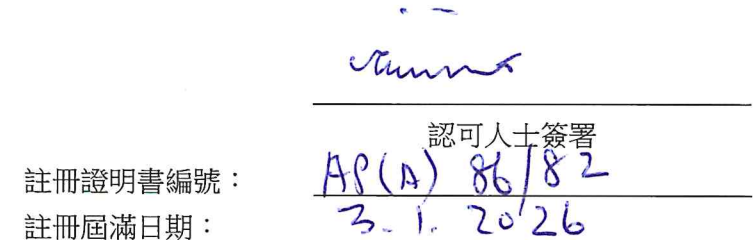 認可人士簽署
註冊證明書編號： AP(A) 86/82
註冊屆滿日期： 3. 1. 2026